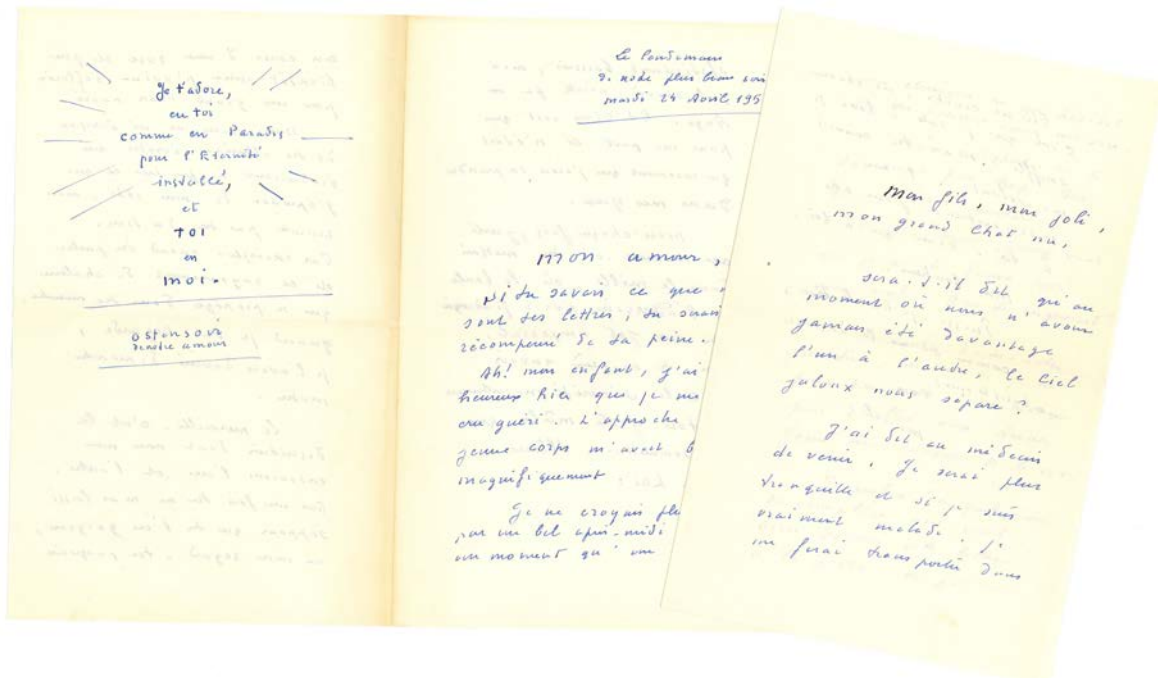 Je t'adore,
en toi
comme en Paradis
pour l'Eternité
installé,
et
toi
en
moi.
ostensoir
de notre amour
Le lendemain
de notre plus beau soir
mardi 24 Avril 195
mon amour,
si tu savais ce que
sont tes lettres, tu serais
récompensé de ta peine.
Ah! mon enfant, j'ai
heureux hier que je me
cru guéri. L'approche
jeune corps m'avait
magnifiquement
Je ne croyais
par un bel après-midi
au moment qu'
mon fils, mon joli,
mon grand Chat nu,
sera-t-il dit qu'au
moment où nous n'avons
jamais été davantage
l'un à l'autre, le Ciel
jaloux nous sépare?
J'ai dit au médecin
de venir, je serai plus
tranquille et si je suis
vraiment malade, je
me ferai transporter dans